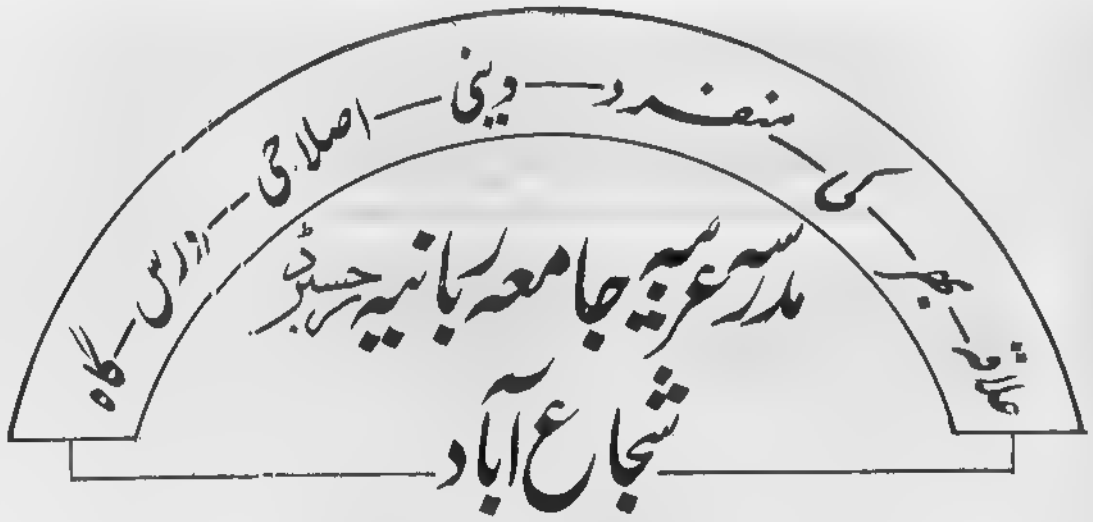 علاقہ بھر کی منفرد دینی اصلاحی درس گاہ
مدرسہ عربیہ جامعہ ربانیہ رجسٹرڈ
شجاع آباد